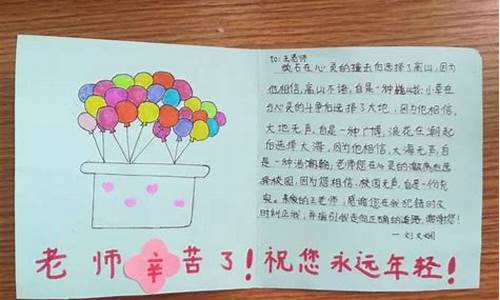 to:王老师
顽石在心灵的撞击后选择了高山,因为
他相信,高山不语,自是一种巍峨;小草在
为心灵的斗争后选择了大地,因为他相信,
大地无声,自是一种广博;浪花在潮起
后选择大海,因为他相信,大海无声,自
是一种浩瀚;老师您在心灵的潮落后选
择校园,因为您相信,校园无声,自是一份充
实。亲爱的王老师,感谢您在我犯错时及
时纠正我,并指引我走向正确的道路,谢谢您!
老师辛苦了!祝您永远年轻!